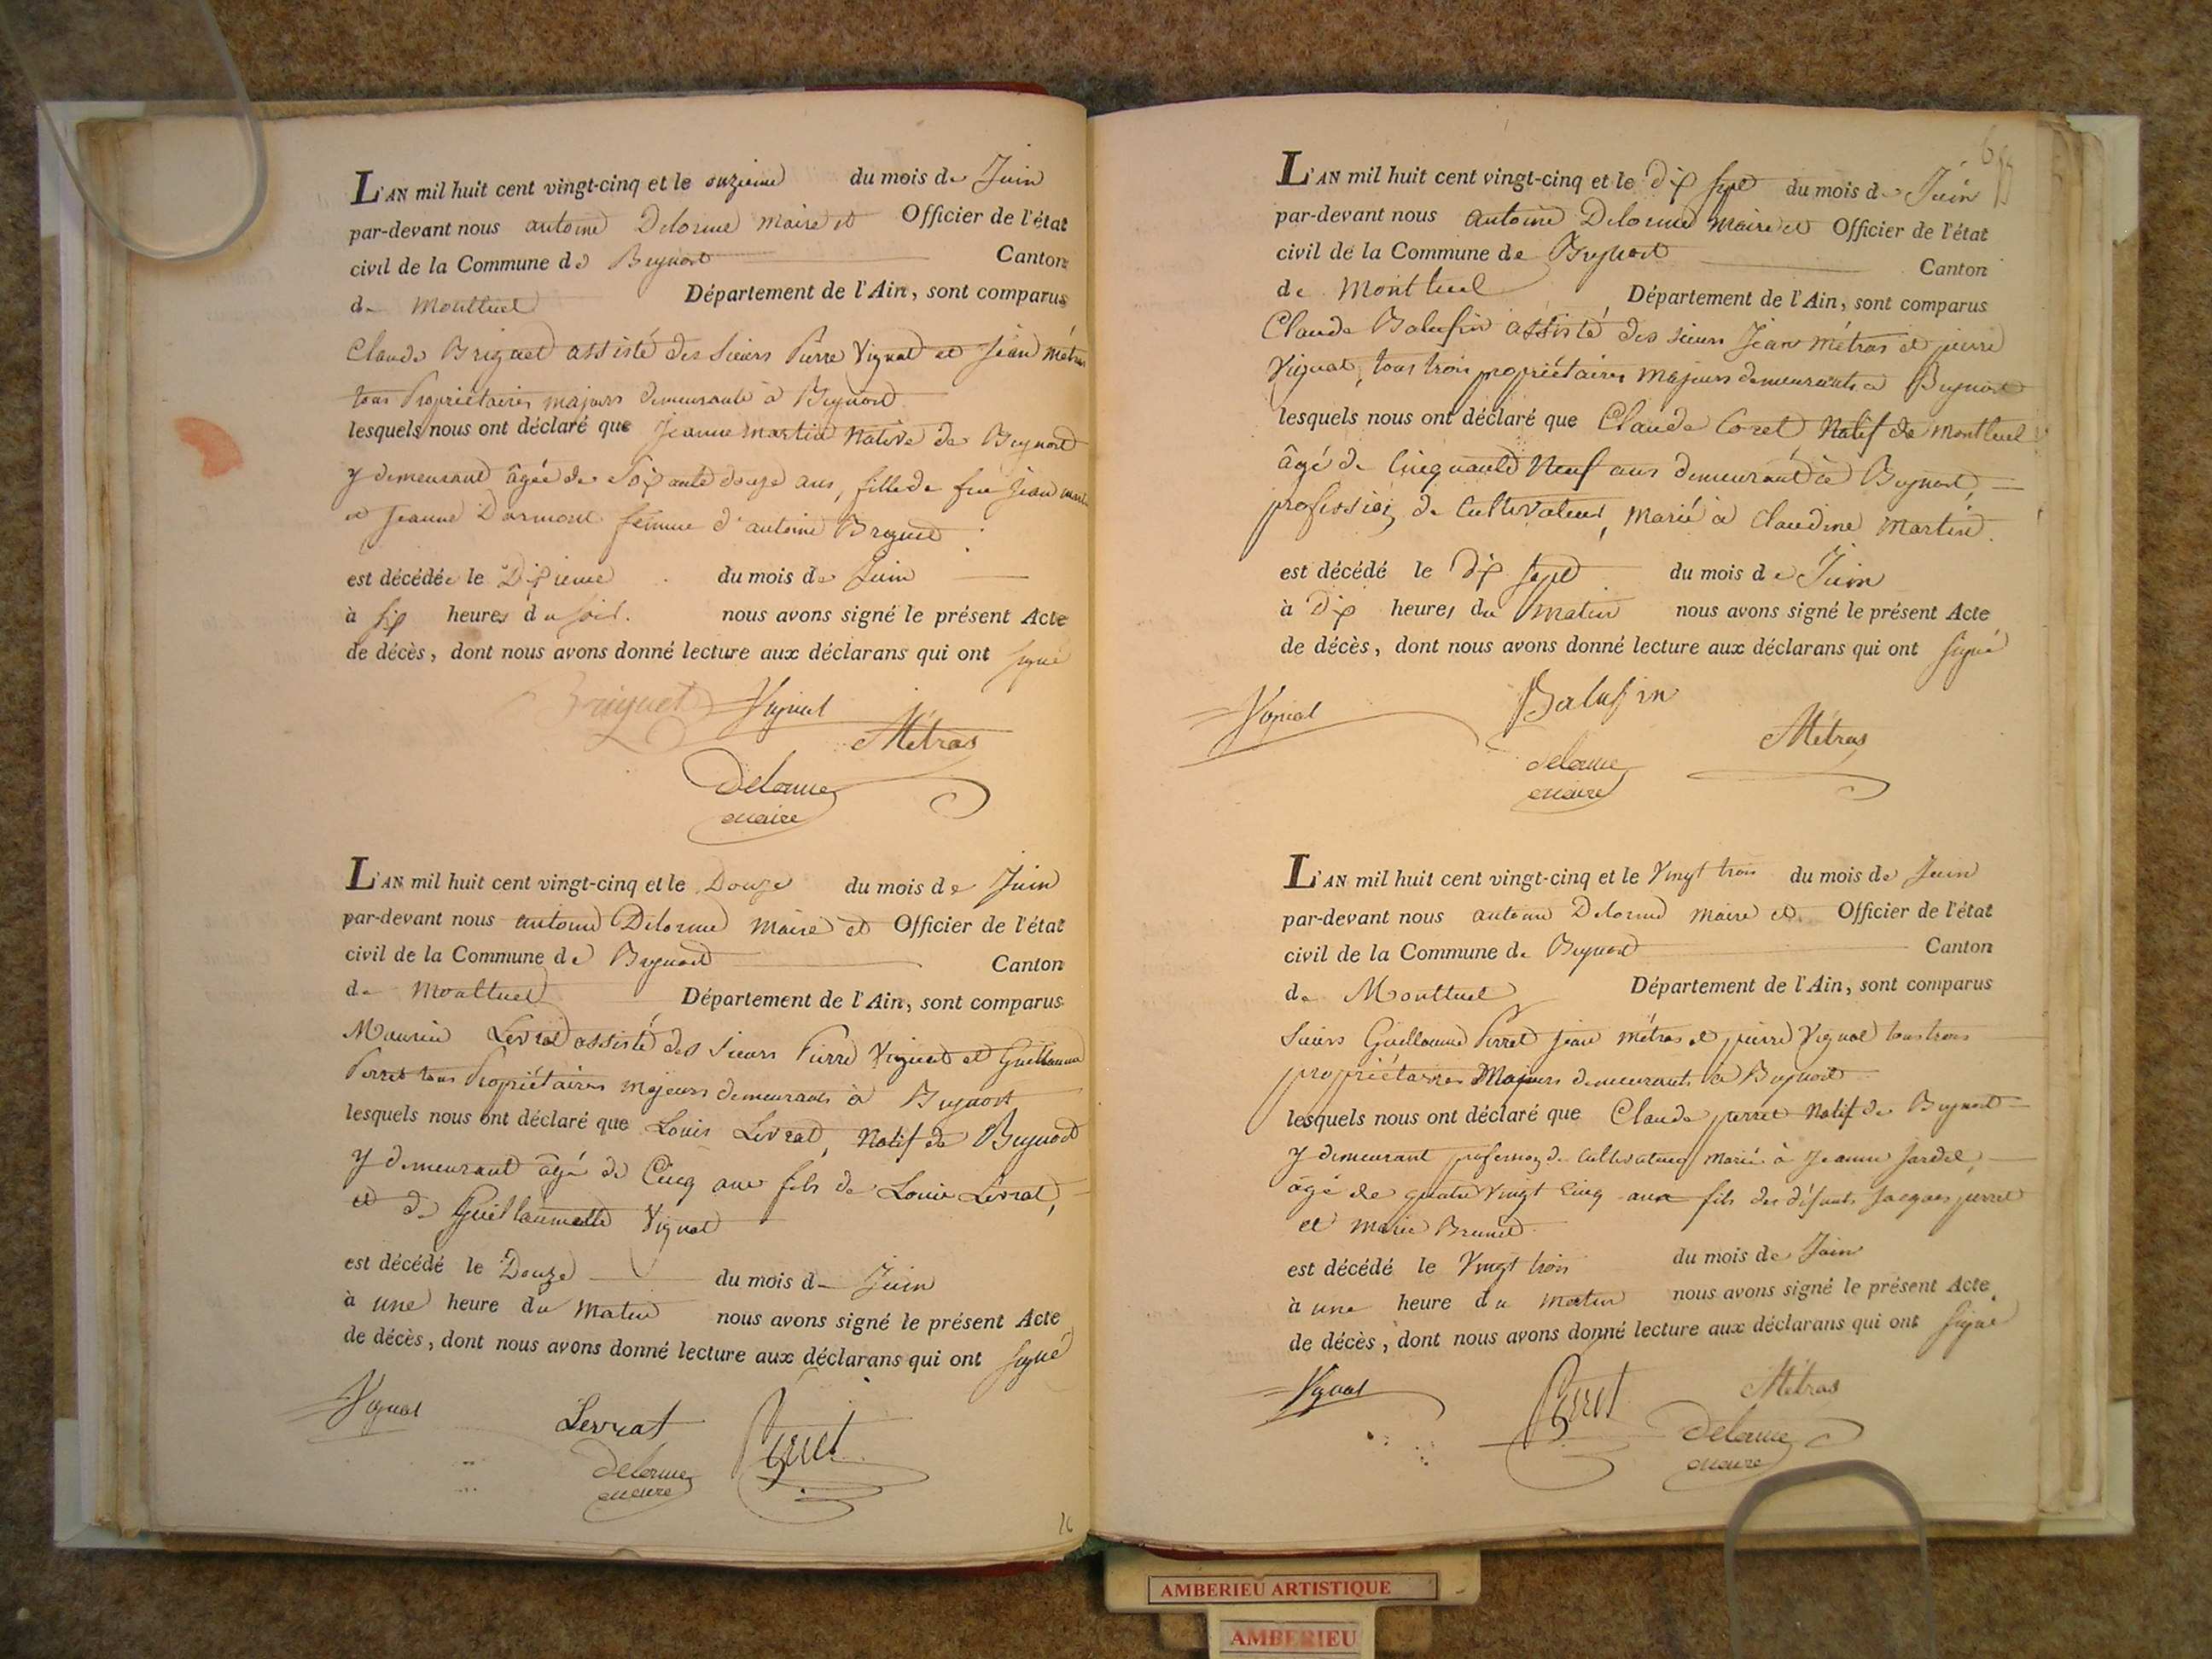 L'AN mil huit cent vingt-cinq et le onzieme du mois de Juin
par-devant nous antoine Delorme maire et Officier de l'état
civil de la Commune de Beynost Canton
de Montluel Département de l'Ain, sont comparus
Claude Briguet assisté des Sieurs Pierre Vignat et Jean Métras
tous Propriétaires majeurs demeurants à Beynost
lesquels nous ont déclaré que Jeanne Martin Native de Beynost
y demeurant âgée de Soixante douze ans, fille de feu Jean Martin
et Jeanne Dormont femme d'antoine Briguet
est décédée le Dixieme du mois de Juin
à six heures du soir. nous avons signé le présent Acte
de décès, dont nous avons donné lecture aux déclarans qui ont signé
Briguet Vignat
Métras
Delorme
maire
L'AN mil huit cent vingt-cinq et le Douze du mois de Juin
par-devant nous antoine Delorme Maire et Officier de l'état
civil de la Commune de Beynost Canton
de Montluel Département de l'Ain, sont comparus
Maurice Levrat assisté des Sieurs Pierre Vignat et Guillaume
Perret tous Propriétaires majeurs demeurants à Beynost
lesquels nous ont déclaré que Louis Levrat, Natif de Beynost
y demeurant âgé de Cinq ans fils de Louis Levrat,
et de Guillaumette Vignat
est décédé le Douze du mois de Juin
à une heure du Matin nous avons signé le présent Acte
de décès, dont nous avons donné lecture aux déclarans qui ont signé
Vignat Levrat Perret
Delorme
maire
16
L'AN mil huit cent vingt-cinq et le dix sept du mois de Juin
par-devant nous Antoine Delorme Maire et Officier de l'état
civil de la Commune de Beynost Canton
de Montluel Département de l'Ain, sont comparus
Claude Balufin assisté des sieurs Jean Métras et pierre
Vignat, tous trois propriétaires majeurs demeurants à Beynost
lesquels nous ont déclaré que Claude Coret Natif de Montluel
âgé de Cinquante Neuf ans demeurant à Beynost,
profession de Cultivateur, Marié à Claudine Martin.
est décédé le dix sept du mois de Juin
à Dix heures du Matin nous avons signé le présent Acte
de décès, dont nous avons donné lecture aux déclarans qui ont signé
Vignat Balufin Métras
Delorme
maire
L'AN mil huit cent vingt-cinq et le Vingt trois du mois de Juin
par-devant nous antoine Delorme Maire et Officier de l'état
civil de la Commune de Beynost Canton
de Montluel Département de l'Ain, sont comparus
Sieurs Guillaume Perret Jean Métras et pierre Vignat tous trois
propriétaires Majeurs demeurants à Beynost
lesquels nous ont déclaré que Claude perret Natif de Beynost
y demeurant profession de Cultivateur Marié à Jeanne Jardel,
âgé de quatre Vingt Cinq ans fils des défunts Jacques perret
et Marie Brunet
est décédé le Vingt trois du mois de Juin
à une heure du Matin nous avons signé le présent Acte
de décès, dont nous avons donné lecture aux déclarans qui ont signé
Vignat Perret Métras
Delorme
maire
AMBERIEU ARTISTIQUE
AMBERIEU